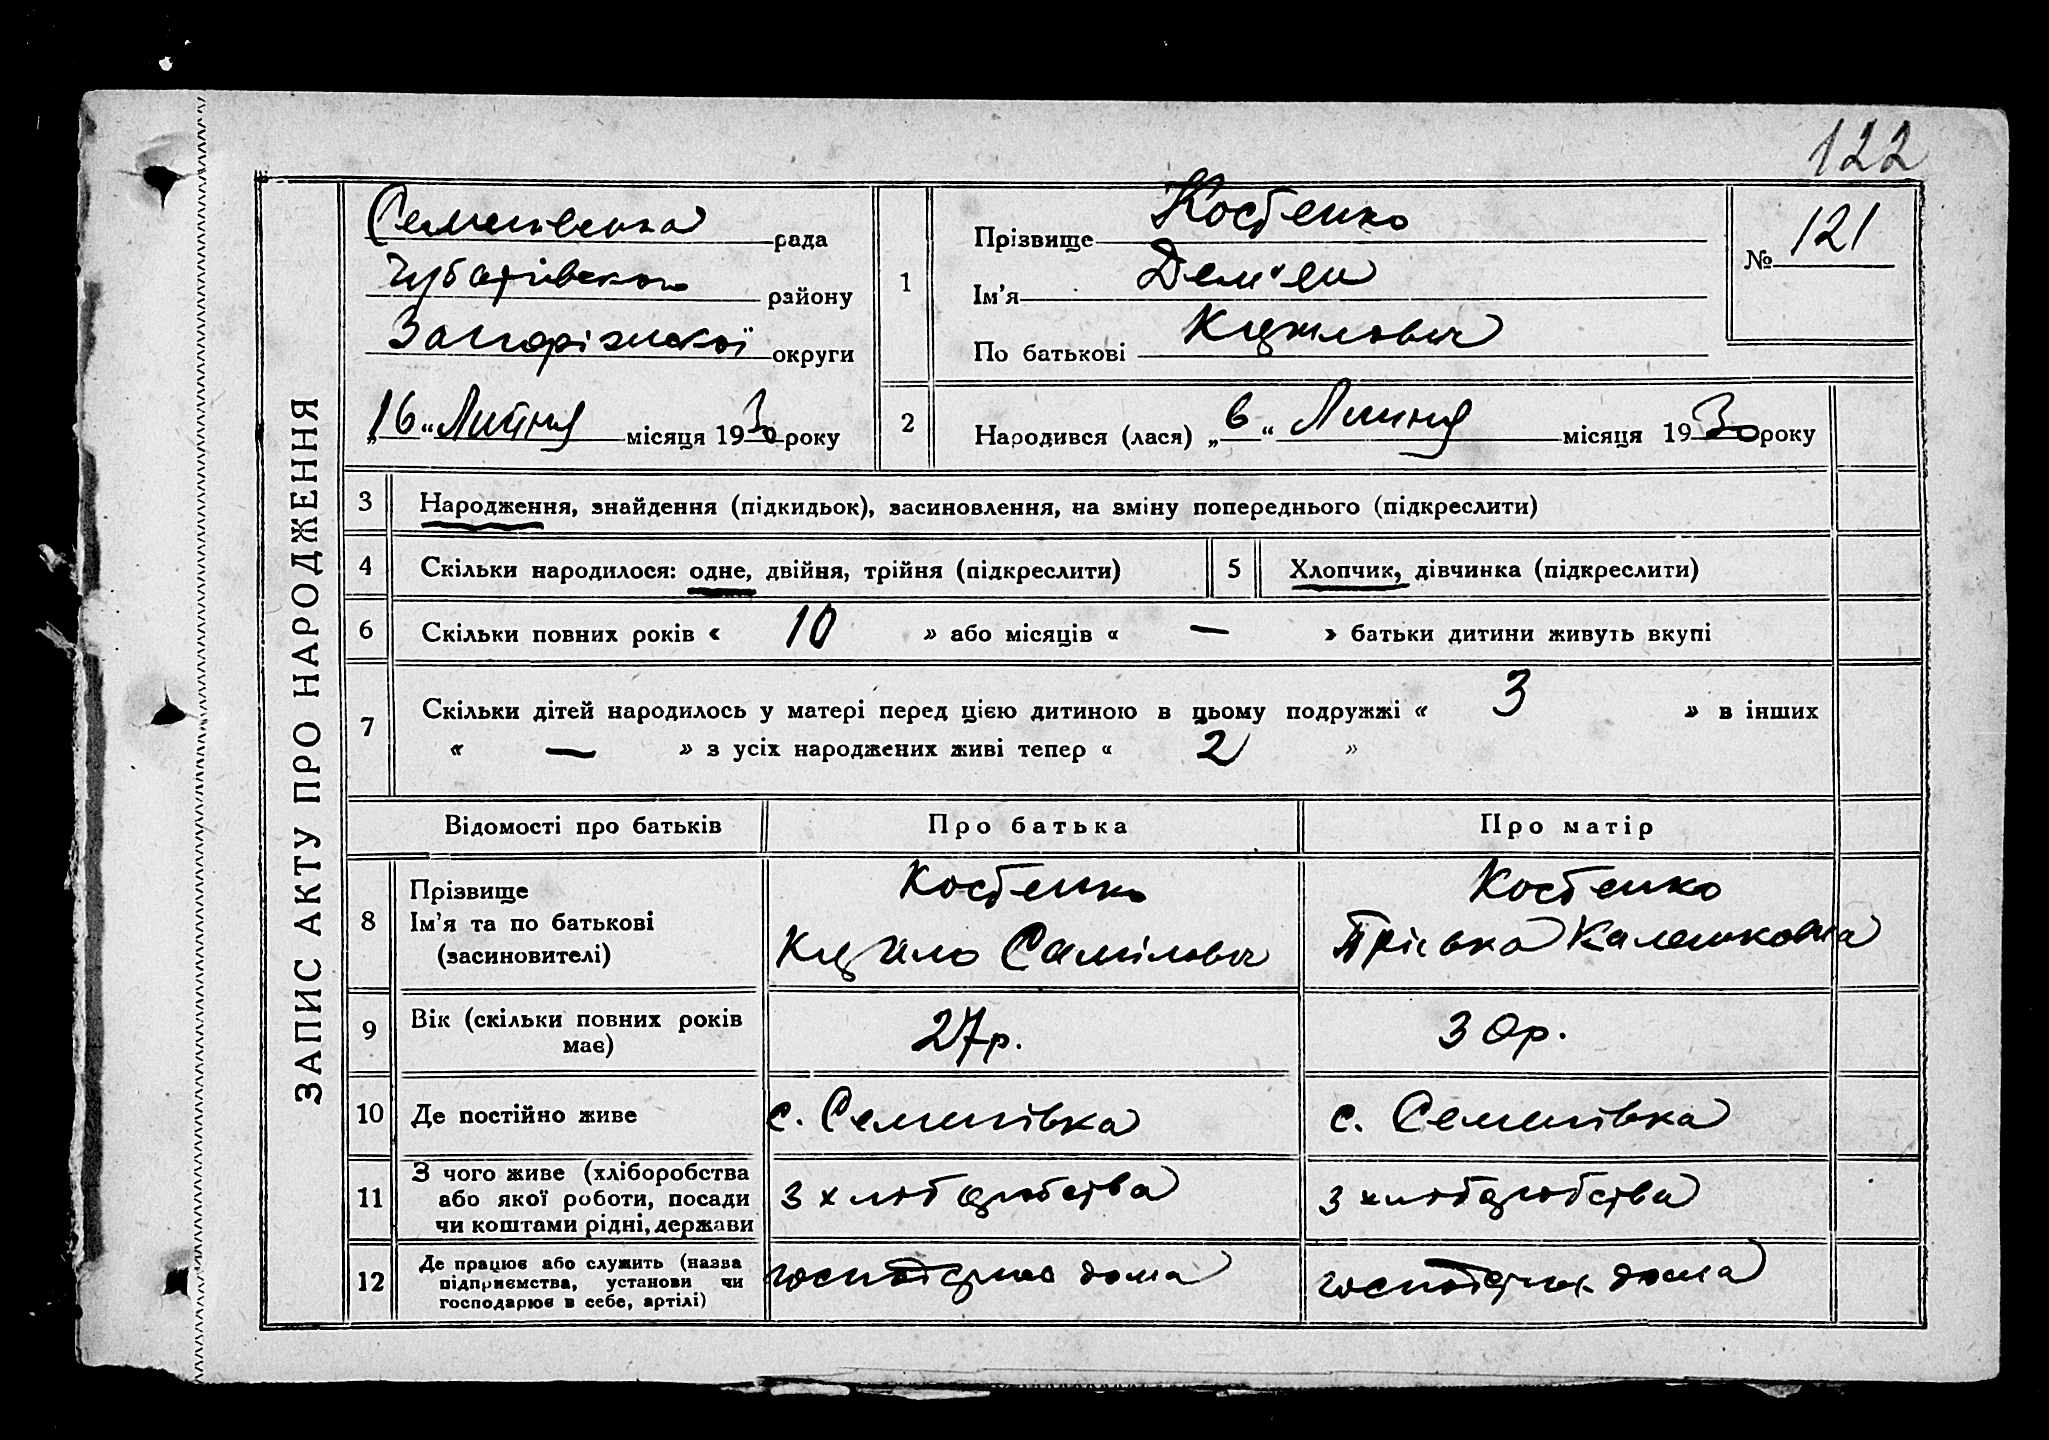 122
ЗАПИС АКТУ ПРО НАРОДЖЕННЯ
Семенівська рада
Чубарівського району
Запоріжської округи
„16“ Липня місяця 1930 року
1
Прізвище Костенко
Ім'я Дем'ян
По батькові Кирилович
№ 121
2
Народився (лася) „6“ Липня місяця 1930 року
3 Народження, знайдення (підкидьок), засиновлення, на зміну попереднього (підкреслити)
4 Скільки народилося: одне, двійня, трійня (підкреслити)
5 Хлопчик, дівчинка (підкреслити)
6 Скільки повних років « 10 » або місяців « — » батьки дитини живуть вкупі
7 Скільки дітей народилось у матері перед цією дитиною в цьому подружжі « 3 » в інших
« — » з усіх народжених живі тепер « 2 »
Відомості про батьків Про батька Про матір
8
Прізвище
Ім'я та по батькові
(засиновителі)
Костенко
Кирило Самілович
Костенко
Пріська
9
Вік (скільки повних років
має)
27р.
30р.
10 Де постійно живе
с. Семенівка
с. Семенівка
11
З чого живе (хліборобства
або якої роботи, посади
чи коштами рідні, держави
з хліборобства
з хліборобства
12
Де працює або служить (назва
підприємства, установи чи
господарює в себе, артілі)
дома
дома